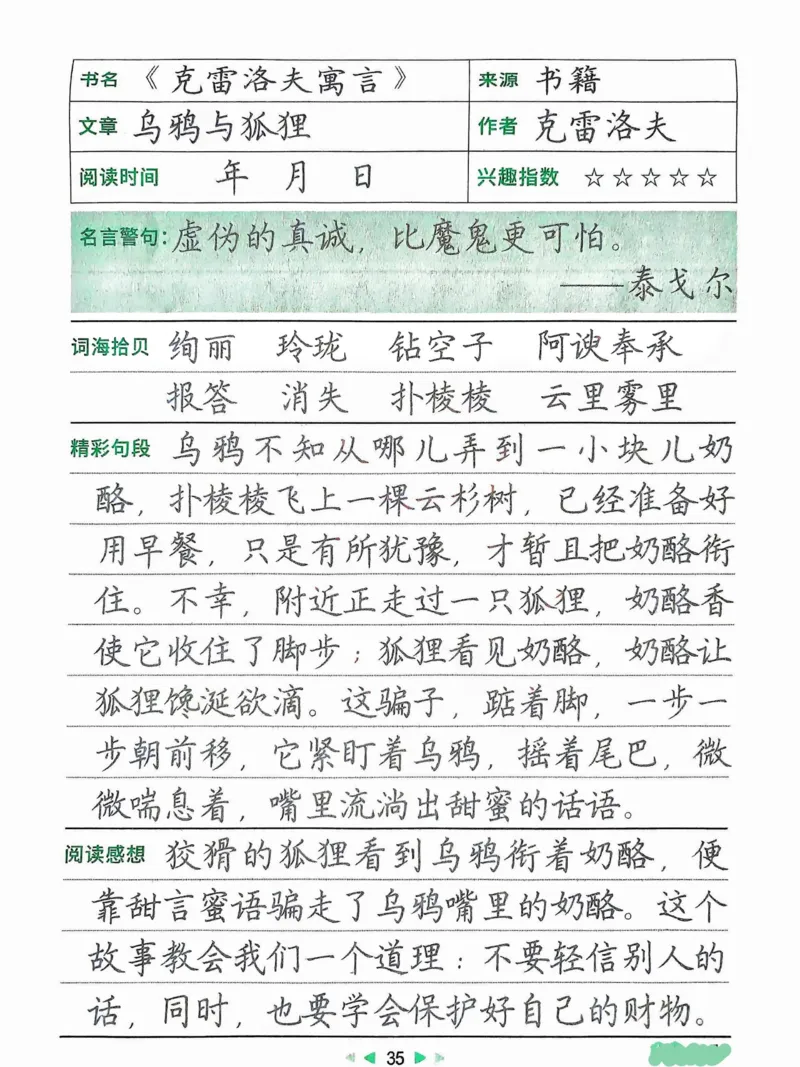 书名 《克雷洛夫寓言》 来源 书籍
文章 乌鸦与狐狸 作者 克雷洛夫
阅读时间 年 月 日 兴趣指数 ☆☆☆☆☆
名言警句:虚伪的真诚，比魔鬼更可怕。
——泰戈尔
词海拾贝 绚丽 玲珑 钻空子 阿谀奉承
报答 消失 扑棱棱 云里雾里
精彩句段 乌鸦不知从哪儿弄到一小块儿奶
酪，扑棱棱飞上一棵云杉树，已经准备好
用早餐，只是有所犹豫，才暂且把奶酪衔
住。不幸，附近正走过一只狐狸，奶酪香
使它收住了脚步；狐狸看见奶酪，奶酪让
狐狸馋涎欲滴。这骗子，踮着脚，一步一
步朝前移，它紧盯着乌鸦，摇着尾巴，微
微喘息着，嘴里流淌出甜蜜的话语。
阅读感想 狡猾的狐狸看到乌鸦衔着奶酪，便
靠甜言蜜语骗走了乌鸦嘴里的奶酪。这个
故事教会我们一个道理：不要轻信别人的
话，同时，也要学会保护好自己的财物。
35